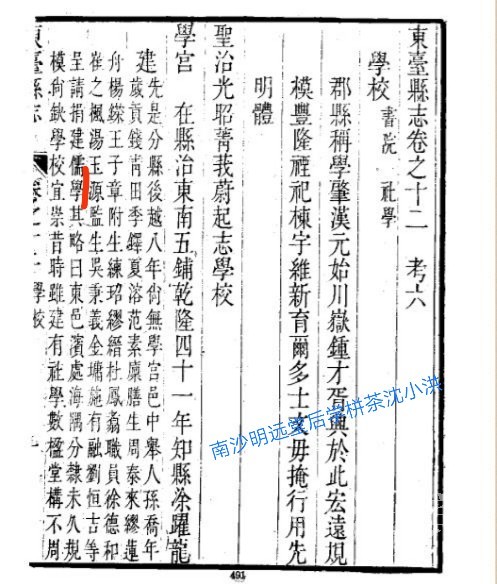 東臺縣志卷之十二 考六
學校 書院 社學
郡縣稱學肇漢元始川嶽鍾才胥興於此宏遠規
模豐隆禋祀棟宇維新育爾多士文毋掩行用先
明體
聖治光昭菁莪蔚起志學校
學宮 在縣治東南五鋪乾隆四十一年知縣涂躍龍
建 先是分縣後越八年尙無學宮邑中舉人孫喬年
歲貢錢青田季鐸夏溶范素廩膳生周泰來繆蓮
舟楊鑅王子章附生練玿繆縉杜鳳翥職員徐德和
崔之楓湯玉源監生吳秉義金墉施有融劉恒吉等
呈請捐建儒學其略曰東邑濱處海隅分隸未久規
模尙欽學校宜崇昔時雖建有社學數楹堂構不周
東臺縣志 卷之十二 學校
南沙明远堂后学栟茶沈小洪
491